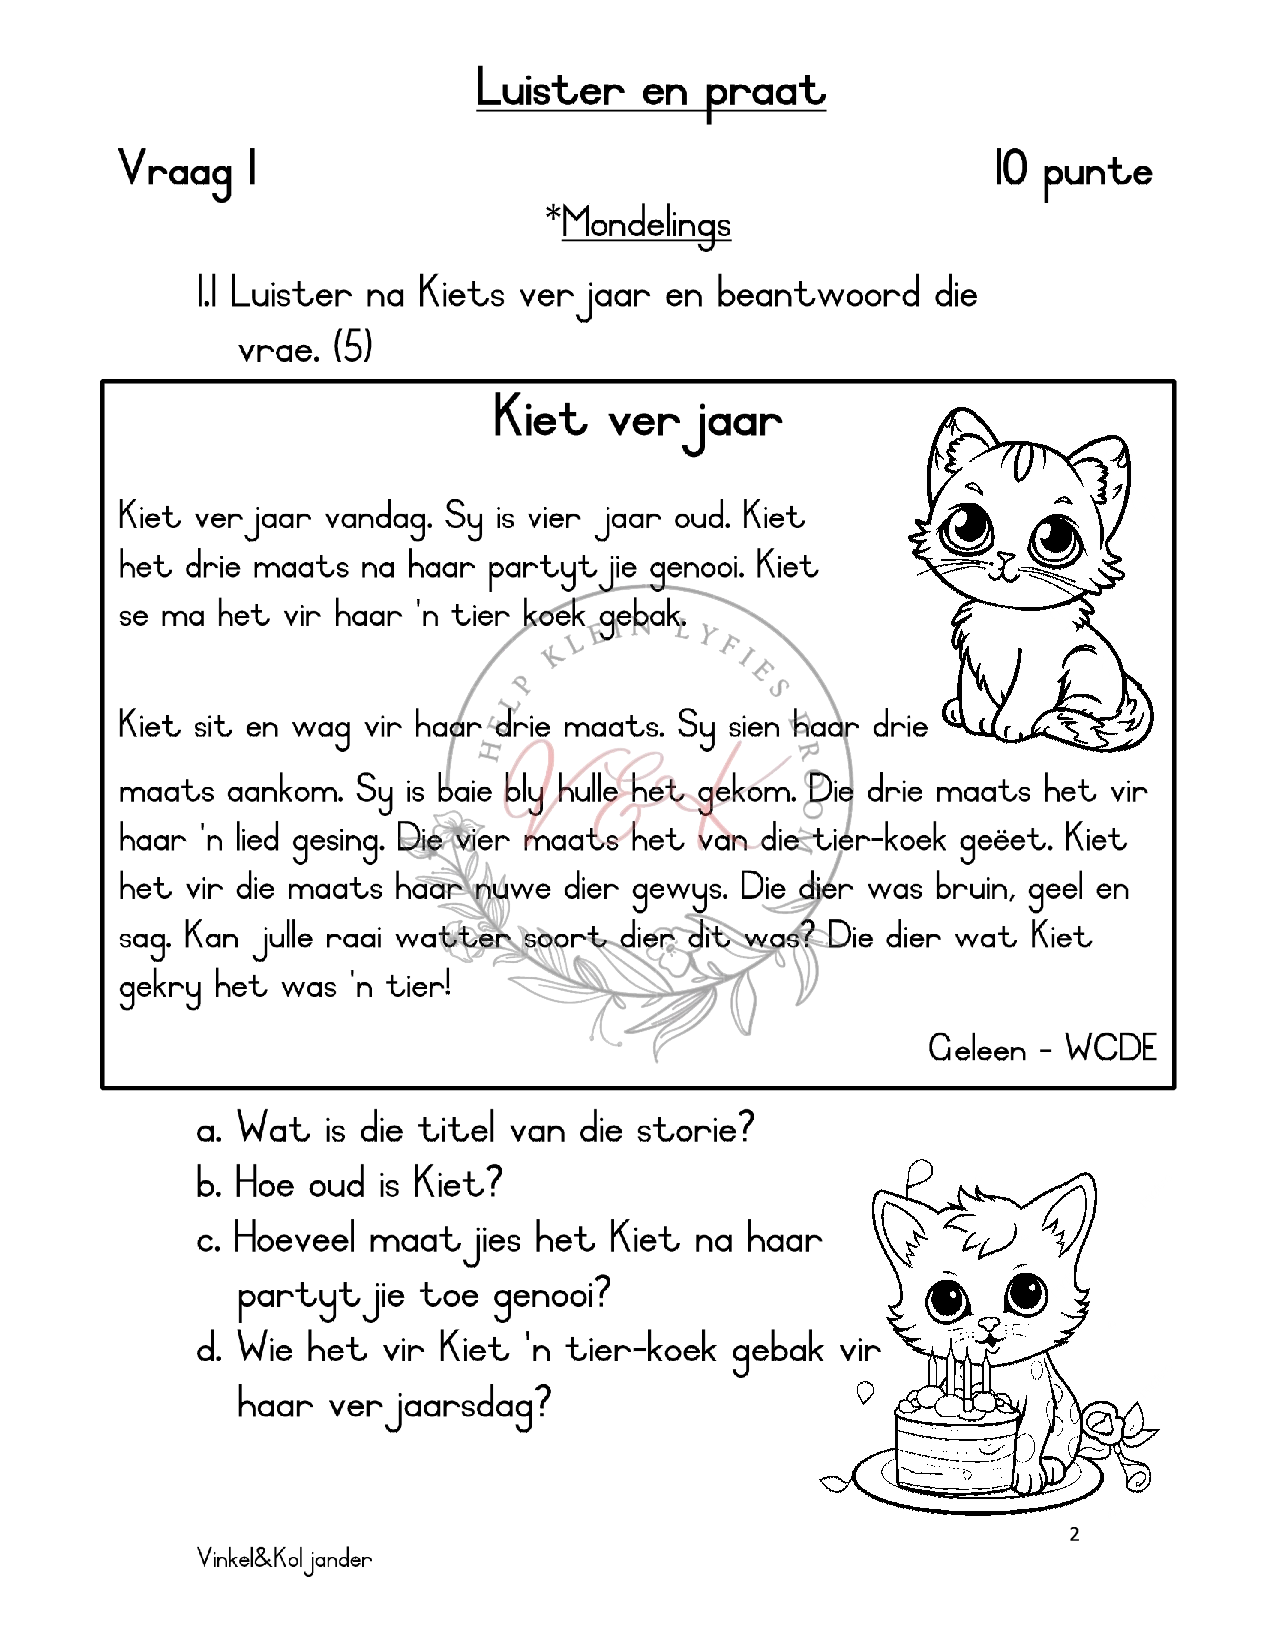 Luister en praat
Vraag 1 10 punte
*Mondelings
1.1 Luister na Kiets verjaar en beantwoord die
vrae. (5)
Kiet verjaar
Kiet verjaar vandag. Sy is vier jaar oud. Kiet
het drie maats na haar partytjie genooi. Kiet
se ma het vir haar 'n tier koek gebak.
Kiet sit en wag vir haar drie maats. Sy sien haar drie
maats aankom. Sy is baie bly hulle het gekom. Die drie maats het vir
haar 'n lied gesing. Die vier maats het van die tier-koek geëet. Kiet
het vir die maats haar nuwe dier gewys. Die dier was bruin, geel en
sag. Kan julle raai watter soort dier dit was? Die dier wat Kiet
gekry het was 'n tier!
Geleen - WCDE
HELP KLEIN LYFIES DROOM
V&K
a. Wat is die titel van die storie?
b. Hoe oud is Kiet?
c. Hoeveel maatjies het Kiet na haar
partytjie toe genooi?
d. Wie het vir Kiet 'n tier-koek gebak vir
haar verjaarsdag?
2
Vinkel&Koljander